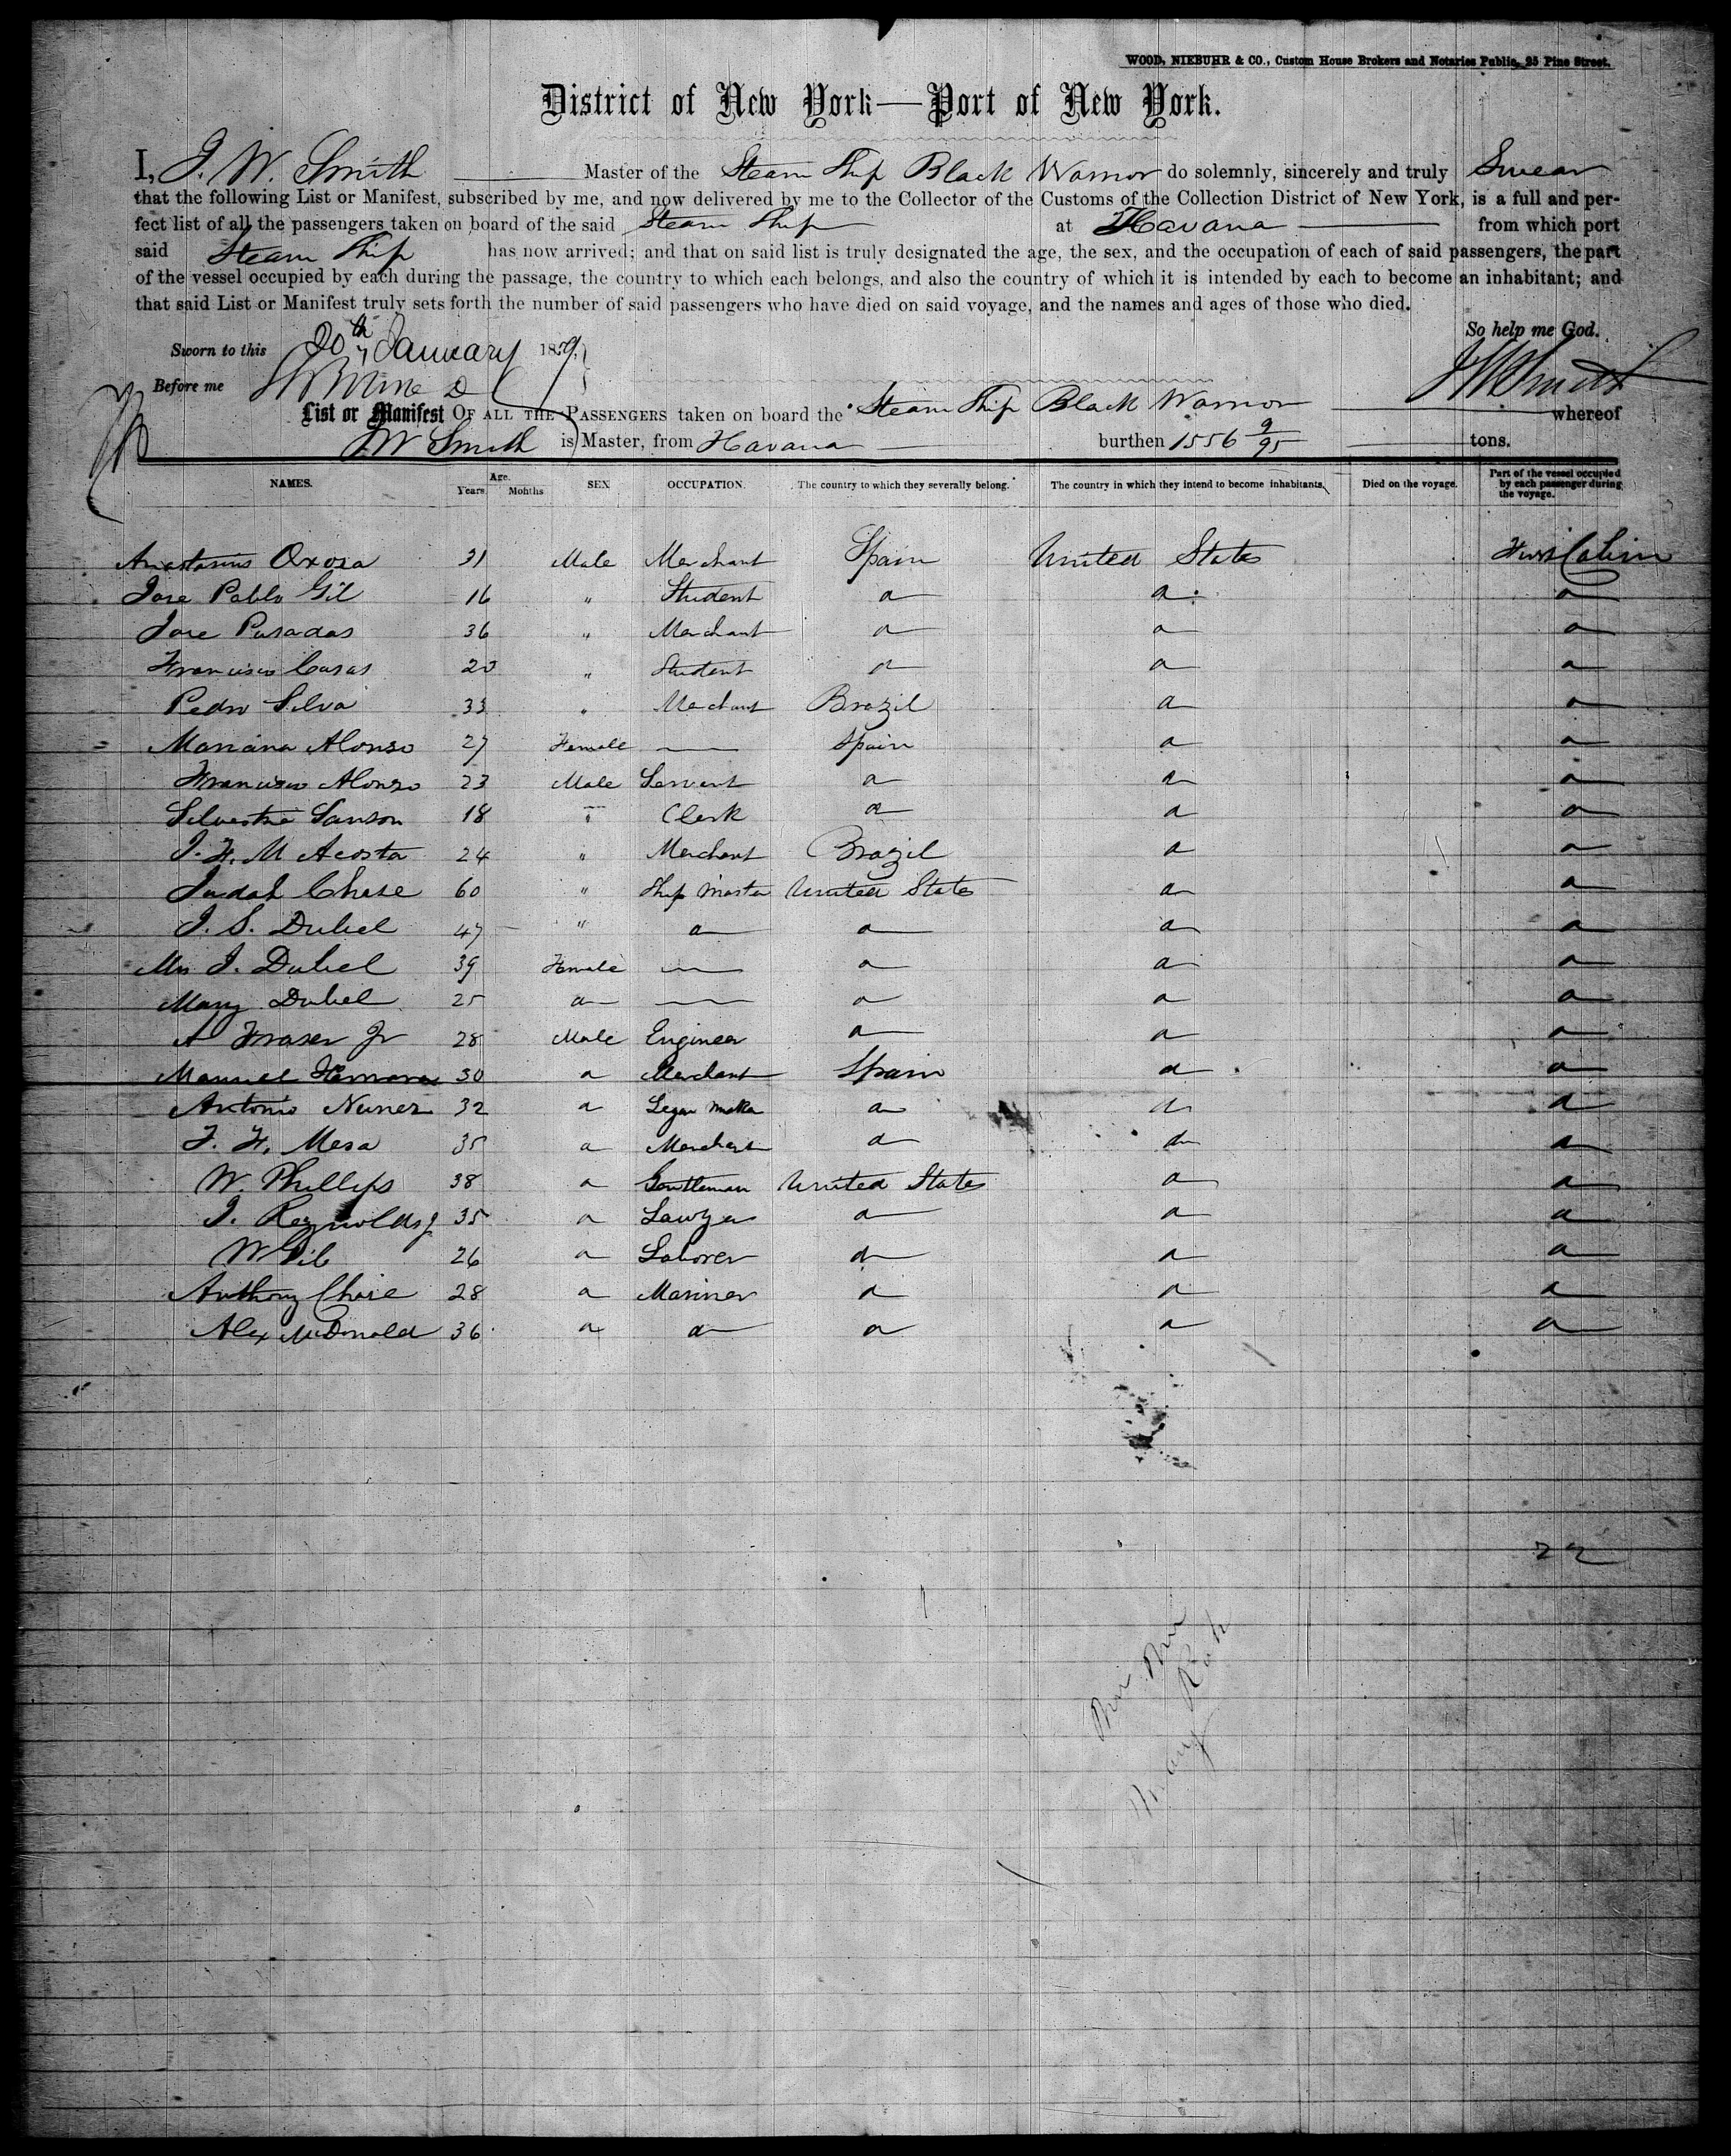 WOOD, NIEBUHR & CO., Custom House Brokers and Notaries Public, 25 Pine Street.
District of New York—Port of New York.
I, J. W. Smith Master of the Steam Ship Black Warrior do solemnly, sincerely and truly Swear
that the following List or Manifest, subscribed by me, and now delivered by me to the Collector of the Customs of the Collection District of New York, is a full and per-
fect list of all the passengers taken on board of the said Steam Ship at Havana from which port
said Steam Ship has now arrived; and that on said list is truly designated the age, the sex, and the occupation of each of said passengers, the part
of the vessel occupied by each during the passage, the country to which each belongs, and also the country of which it is intended by each to become an inhabitant; and
that said List or Manifest truly sets forth the number of said passengers who have died on said voyage, and the names and ages of those who died.
So help me God.
Sworn to this 20th January 1859,
Before me
J W Smith
List or Manifest OF ALL THE PASSENGERS taken on board the Steam Ship Black Warrior whereof
J W Smith is Master, from Havana burthen 1556 9/95 tons.
NAMES. Age. Years. Months SEX OCCUPATION. The country to which they severally belong. The country in which they intend to become inhabitants. Died on the voyage. Part of the vessel occupied by each passenger during the voyage.
Anastasius Oxosa 31 Male Merchant Spain United States First Cabin
Jose Pablo Gil 16 " Student a a a
Jose Posadas 36 " Merchant a a a
Francisco Casas 20 " Student a a a
Pedro Silva 33 " Merchant Brazil a a
Mariana Alonso 27 Female — Spain a a
Francisco Alonzo 23 Male Servent a a a
Silvestre Sanson 18 " Clerk a a a
J. F. M Acosta 24 " Merchant Brazil a a
Judah Chase 60 " Ship Master United States a a
J. S. Dubel 47 " a a a a
Mrs J. Dubel 39 Female — a a a
Mary Dubel 25 a — a a a
A Fraser Jr 28 Male Engineer a a a
Manuel 30 a Merchant Spain a a
Antonio Nunez 32 a Segar Maker a a a
F. F. Mesa 35 a Merchant a a a
W. Phillips 38 a Gentleman United States a a
J. Reynolds J 35 a Lawyer a a a
W Gib 26 a Laborer a a a
Anthony Chase 28 a Mariner a a a
Alex McDonald 36 a a a a a
22